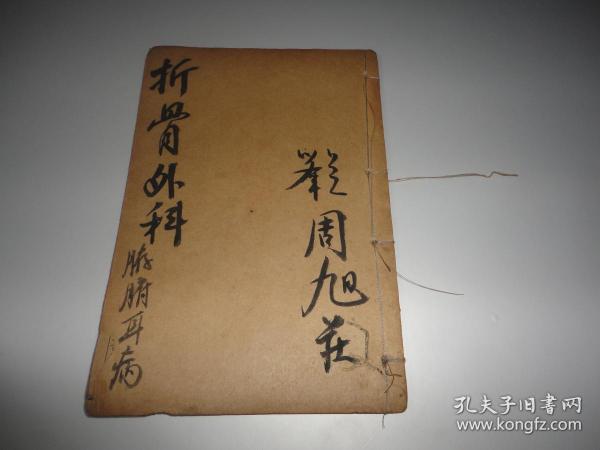 周旭莊
折骨外科
腑耳病
孔夫子旧书网
www.kongfz.com